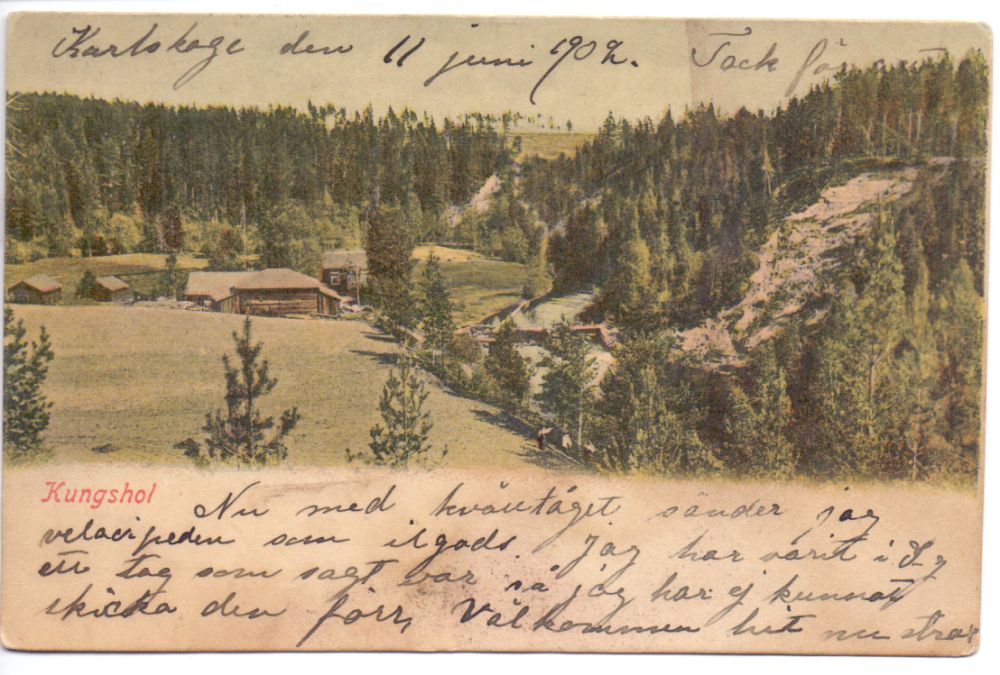 Karlskoga den 11 juni 1902. Tack för
Kungshol
Nu med kvälltåget sänder jag
velocipeden som ilgods. Jag har varit i
ett tag som sagt var så jag har ej kunnat
skicka den förr, Välkommen hit nu strax